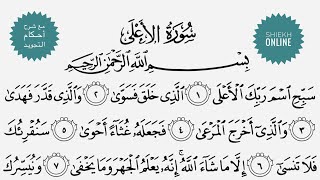 مع شرح
أحكام
التجويد
SHIEKH
ONLINE
سُورَةُ الأَعْلَى
بِسْمِ اللَّهِ الرَّحْمَٰنِ الرَّحِيمِ
سَبِّحِ اسْمَ رَبِّكَ الْأَعْلَى ١ الَّذِي خَلَقَ فَسَوَّىٰ ٢ وَالَّذِي قَدَّرَ فَهَدَىٰ
٣ وَالَّذِي أَخْرَجَ الْمَرْعَىٰ ٤ فَجَعَلَهُ غُثَاءً أَحْوَىٰ ٥ سَنُقْرِئُكَ
فَلَا تَنسَىٰ ٦ إِلَّا مَا شَاءَ اللَّهُ إِنَّهُ يَعْلَمُ الْجَهْرَ وَمَا يَخْفَىٰ ٧ وَنُيَسِّرُكَ